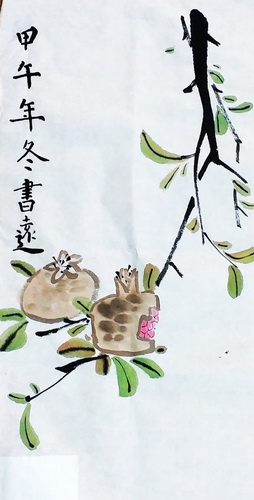 甲午年冬書遠